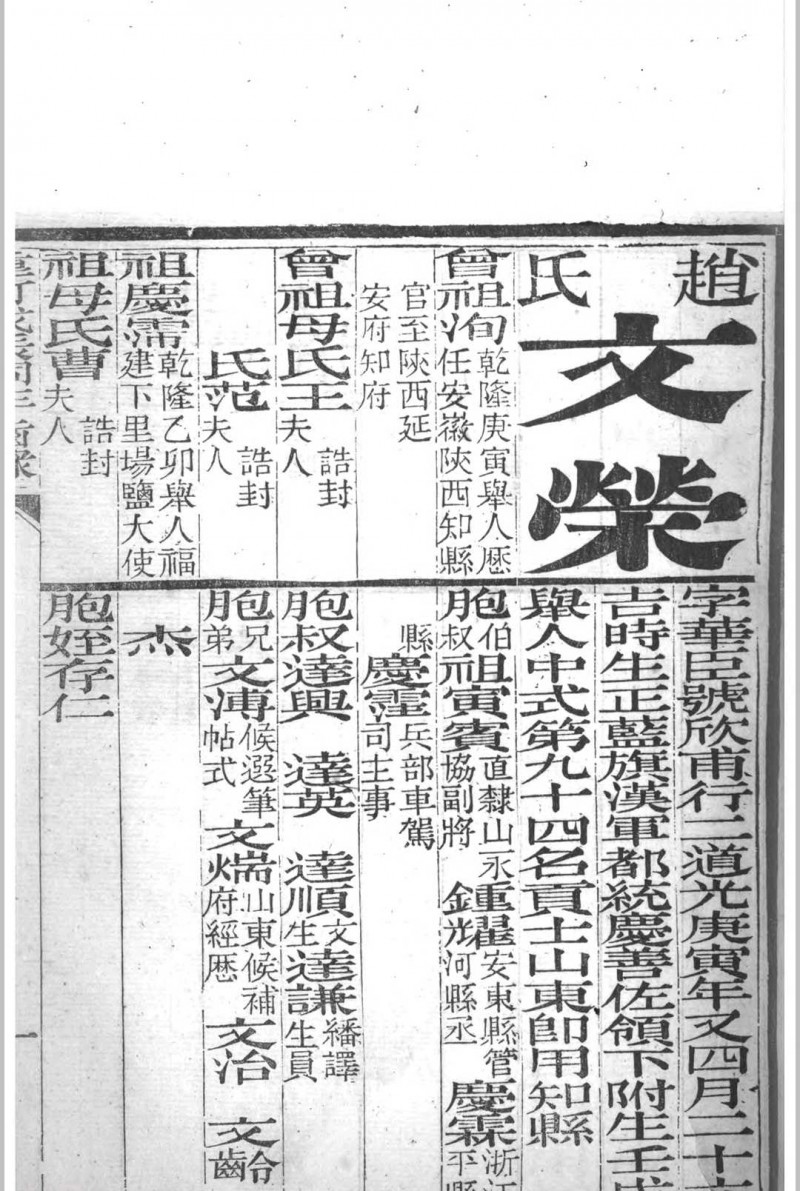 趙
氏
文榮
曾祖洵 乾隆庚寅舉人歷
任安徽陝西知縣
官至陝西延
安府知府
曾祖母氏王 誥封
夫人
氏范 誥封
夫人
祖慶霈 乾隆乙卯舉人福
建下里場鹽大使
祖母氏曹 誥封
夫人
字華臣號欣甫行二道光庚寅年又四月二十
吉時生正藍旗漢軍都統慶善佐領下附生壬
舉人中式第九十四名貢士山東即用知縣
胞伯叔祖寅賓 直隸山永
協副將
鍾耀 安東縣管
河縣丞
慶霖 浙江
平
縣
慶霔 兵部車駕
司主事
胞叔達興 達英 達順 文
生
達謙 繙譯
生員
胞兄弟文溥 候選筆
帖式
文耑 山東候補
府經歷
文治 文
杰
胞姪存仁
一